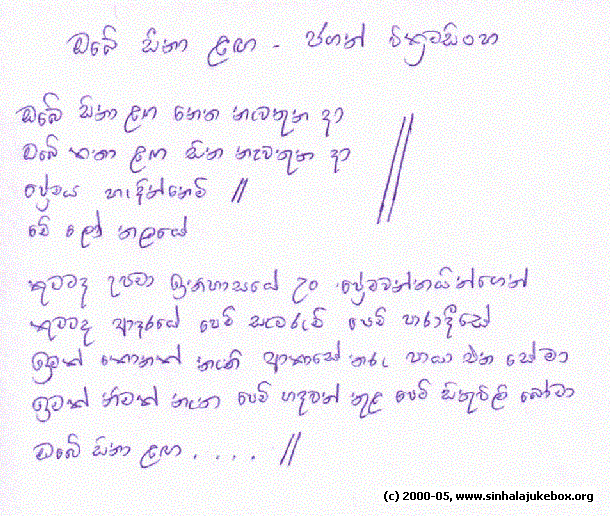 ඔබේ සිනා ළඟ - ජගත් වික්‍රමසිංහ
ඔබේ සිනා ළඟ නෙත නැවතුන දා
ඔබේ කතා ළඟ සිත නැවතුන දා
ප්‍රේමය හැඳින්නෙමි //
මේ ලෝ තලයේ //
කුමටද උපමා ඉතිහාසයේ උං ප්‍රේමවන්තයින්ගෙන්
කුමටද ආදරයේ පෙම් සැමරුම් පෙම් පාරාදීසේ
ඉමක් කොනක් නැති ආකාසේ තරු පායා එන සේමා
ඉමක් නිමක් නැතා පෙම් හදවත් තුළ පෙම් සිතුවිලි බෝමා
ඔබේ සිනා ළඟ . . . . //
(c) 2000-05, www.sinhalajukebox.org